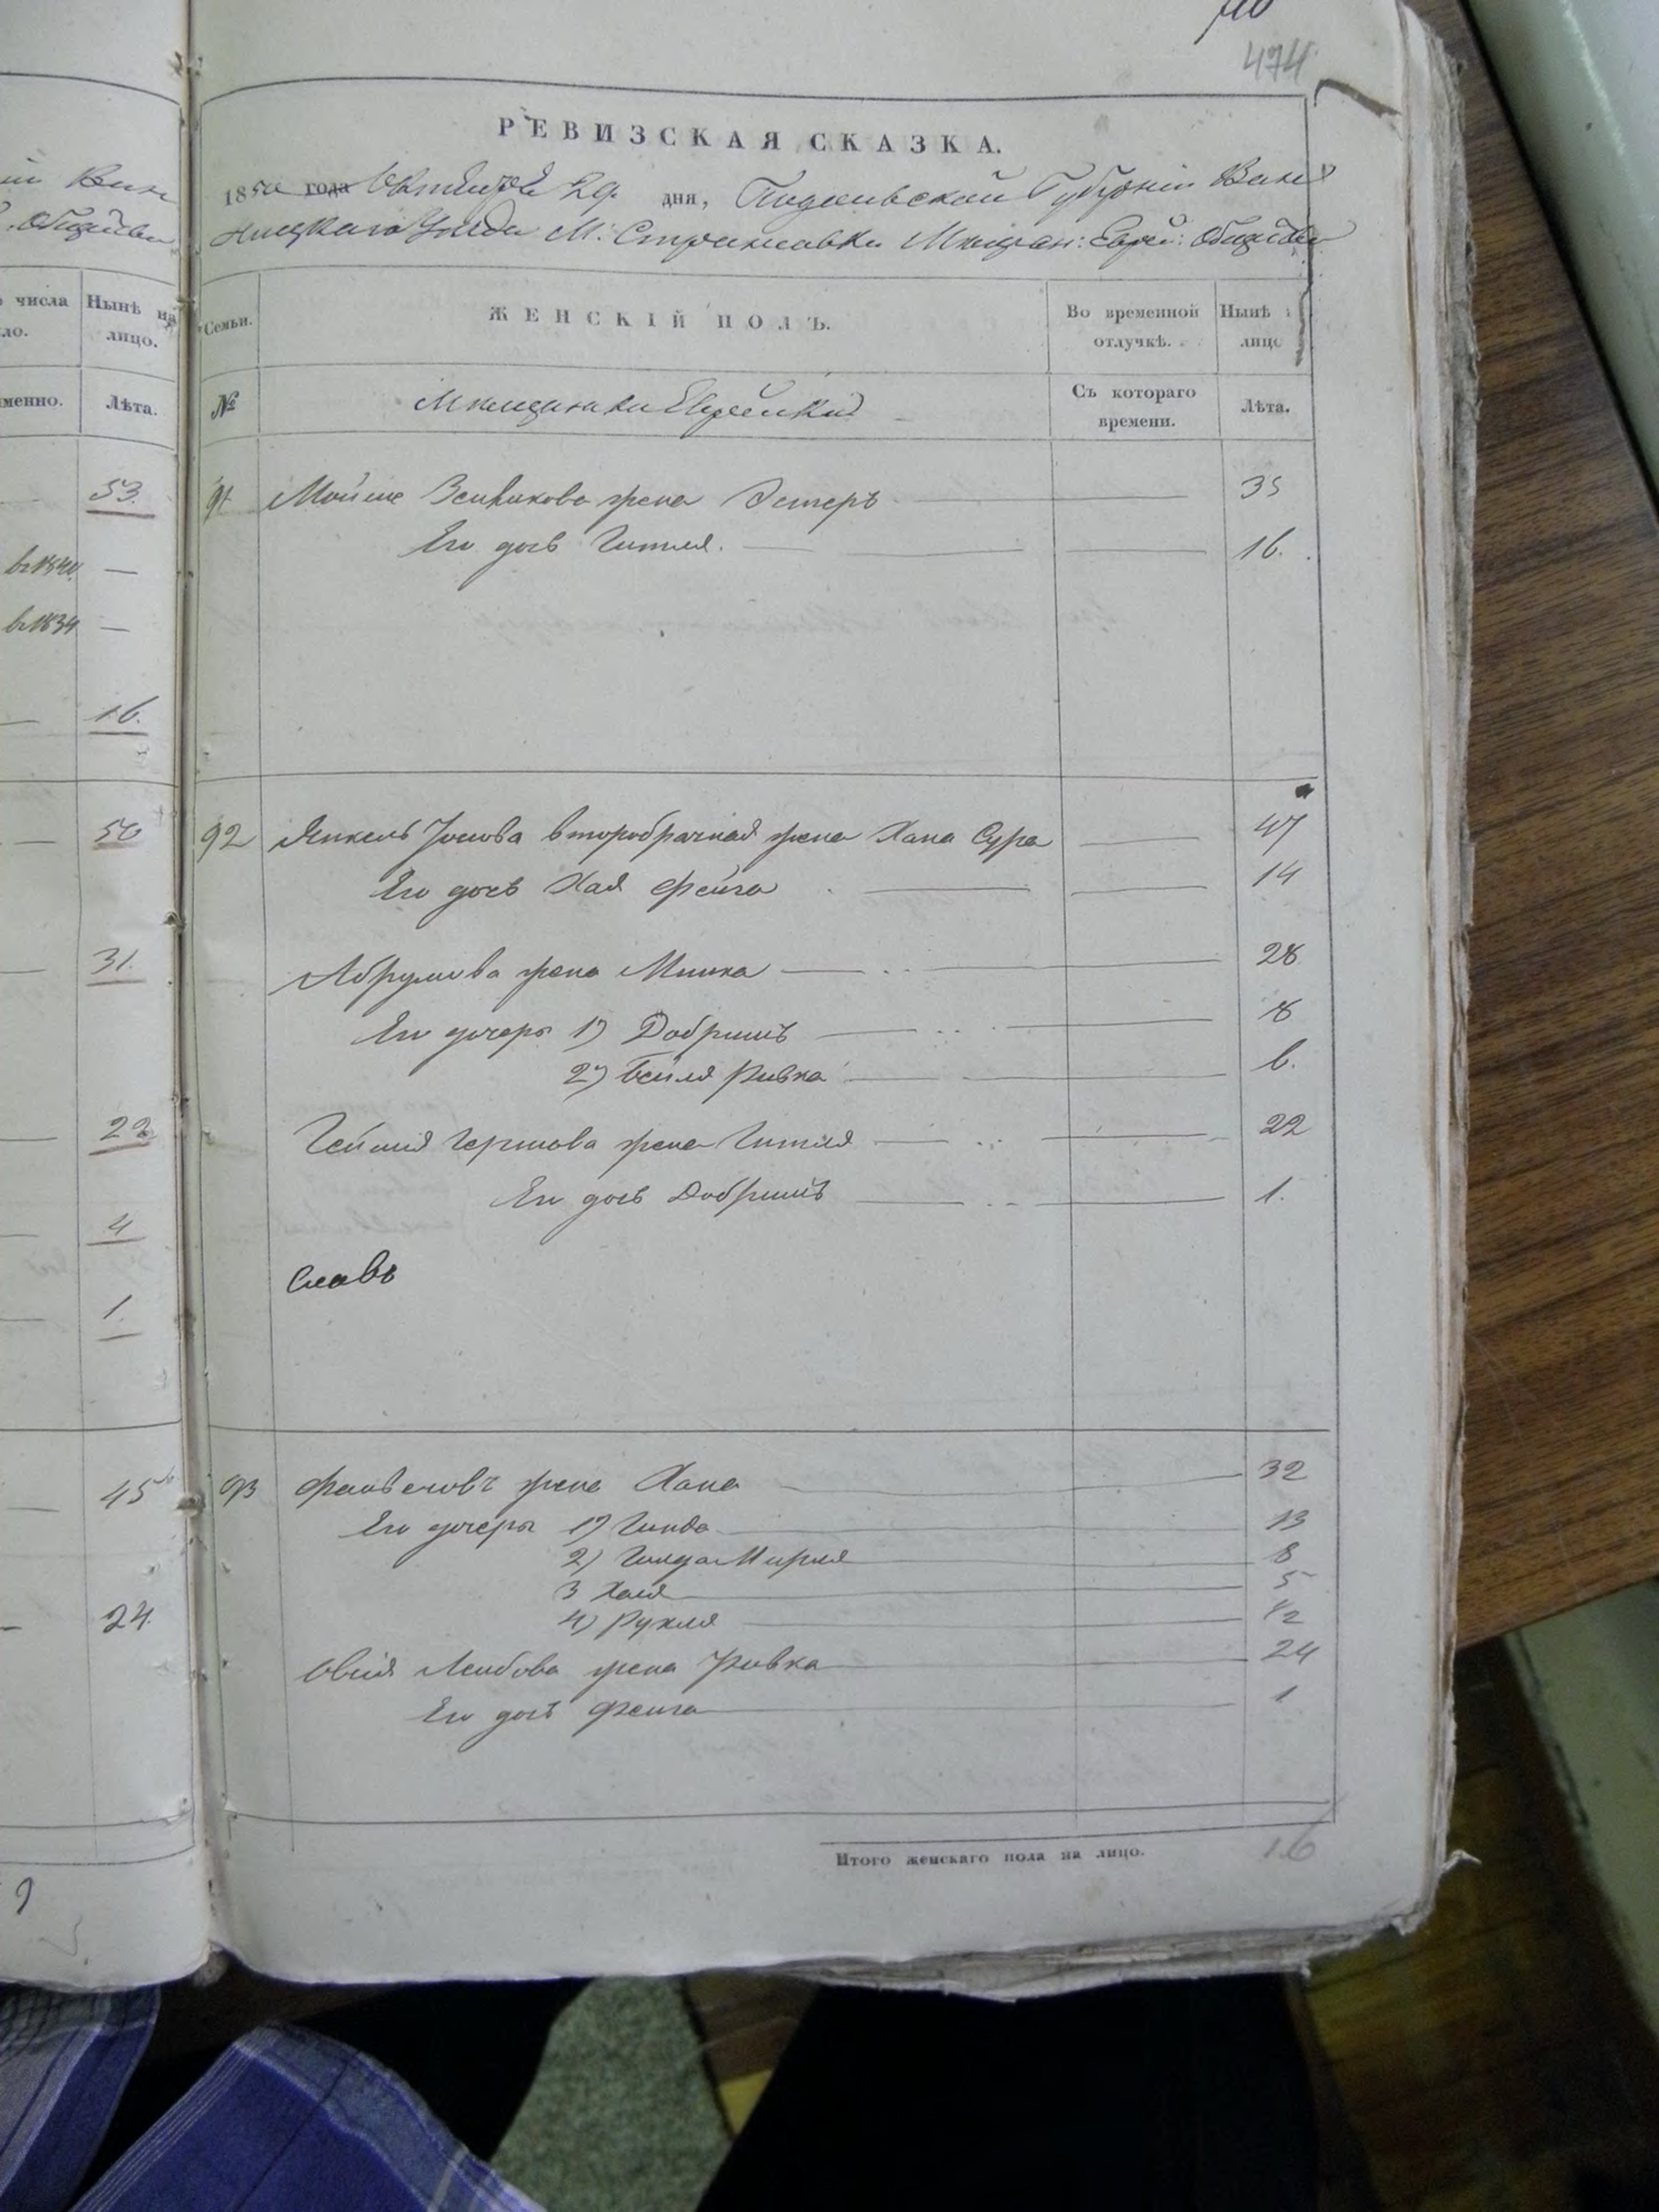 474
РЕВИЗСКАЯ СКАЗКА.
1850 года Октября 29 дня, Подольской Губерніи Вин
ницкаго Уезда М. Стрижавки Мещан: Еврей: Общества
Семьи.
ЖЕНСКІЙ ПОЛЪ.
Во временной отлучкѣ.
Нынѣ
лицо
№
Мещанки Еврейки
Съ котораго времени.
Лѣта.
91 Мойше Зейликова жена Эстеръ 35
Его дочь Гитля. 16.
92 Янкель Іосіова второбрачная жена Хана Сура 47
Его дочь Хая Фейга 14
Абрумова жена Минка 28
Его дочеры 1) Добришъ 8
2) Бейля Ривка 6.
Гершова жена Гитля 22
Его дочь Добришъ 1.
93 жена Хана 32
Его дочеры 1) Гинда 13
2) Голда Мирля 8
3 Хая 5
4) Рухля 1/2
Овсія Лейбова жена Ривка 24
Его дочь Фейга 1
Итого женскаго пола на лицо. 16
числа
ло.
Нынѣ на
лицо.
именно.
Лѣта.
53.
в 1840.
в 1834
16.
50
31.
22
4
1.
45
24.